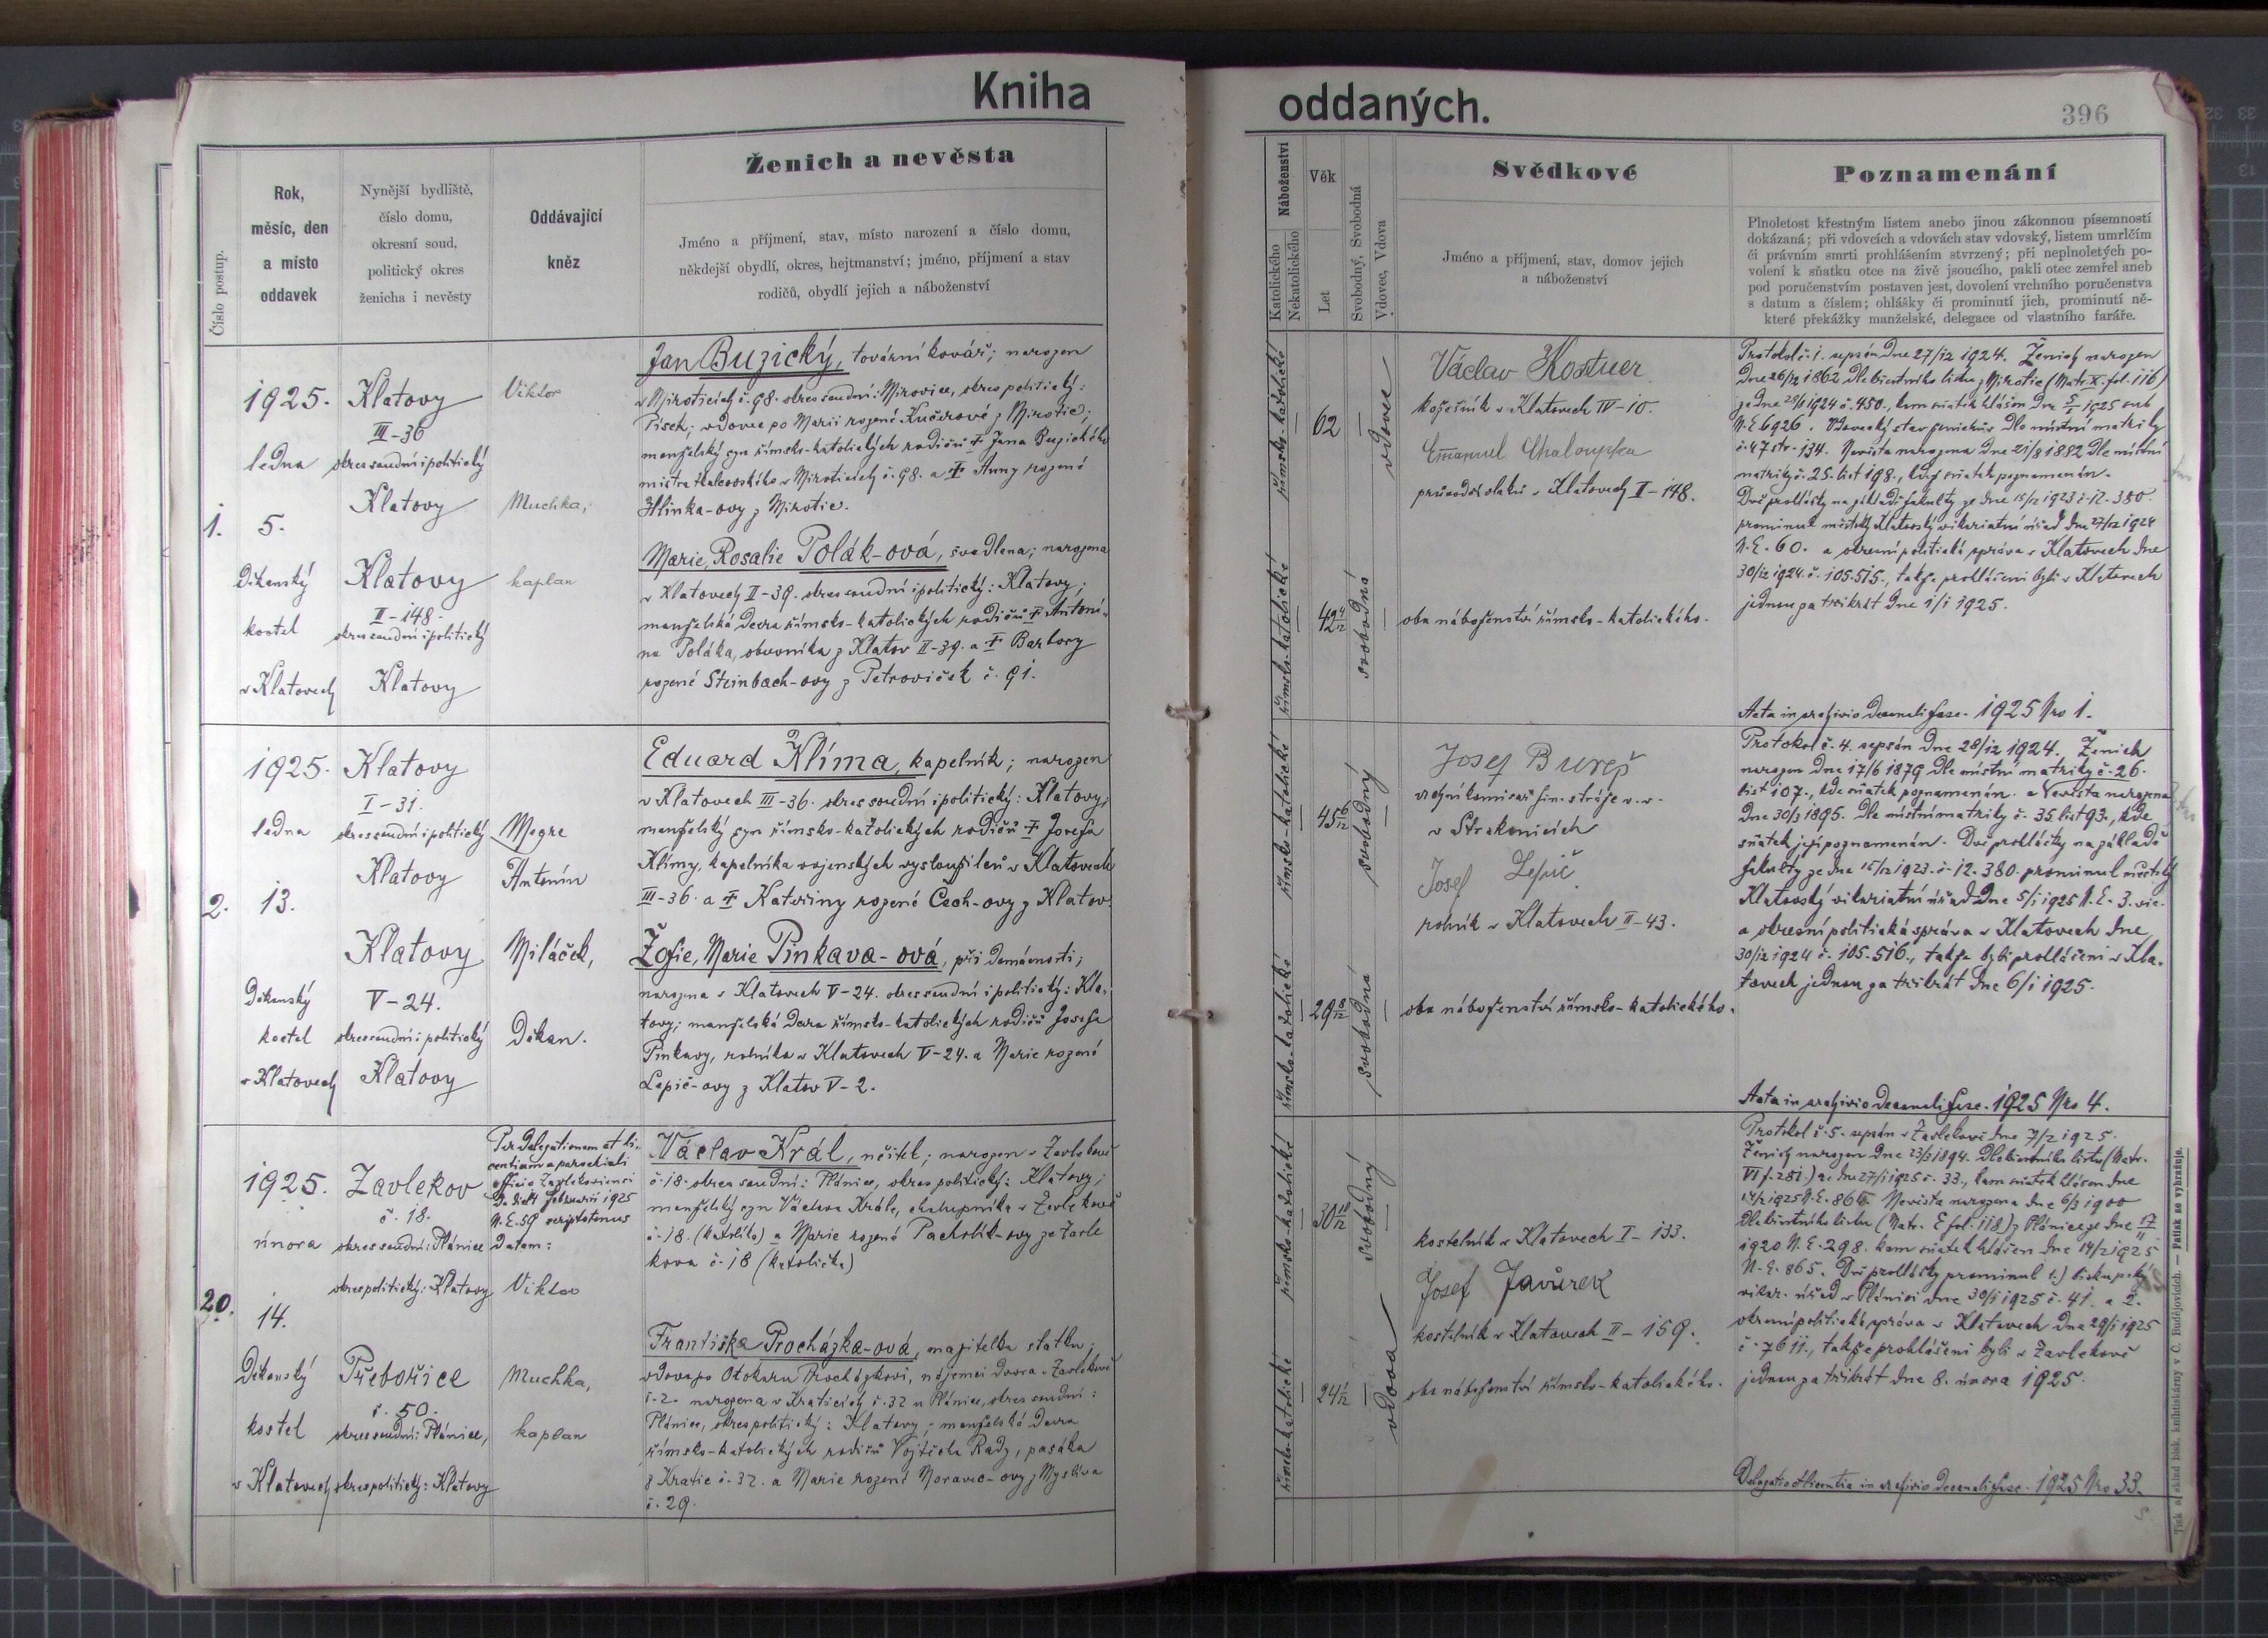 Kniha
oddaných.
396
Číslo postup.
Rok,
měsíc, den
a místo
oddavek
Nynější bydliště,
číslo domu,
okresní soud,
politický okres
ženicha i nevěsty
Oddávající
kněz
Ženich a nevěsta
Jméno a příjmení, stav, místo narození a číslo domu,
někdejší obydlí, okres, hejtmanství; jméno, příjmení a stav
rodičů, obydlí jejich a náboženství
Náboženství
Katolického
Nekatolického
Věk
Let
Svobodný, Svobodná
Vdovec, Vdova
Svědkové
Jméno a příjmení, stav, domov jejich
a náboženství
Poznamenání
Plnoletost křestným listem anebo jinou zákonnou písemností
dokázaná; při vdovcích a vdovách stav vdovský, listem umrlčím
či právním smrti prohlášením stvrzený; při neplnoletých po-
volení k sňatku otce na živě jsoucího, pakli otec zemřel aneb
pod poručenstvím postaven jest, dovolení vrchního poručenstva
s datum a číslem; ohlášky či prominutí jich, prominutí ně-
které překážky manželské, delegace od vlastního faráře.
1.
1925.
ledna
5.
Děkanský
kostel
v Klatovech
Klatovy
III-36
okres soudní i politický
Klatovy
Klatovy
II-148.
okres soudní i politický
Klatovy
Viktor
Muchka,
kaplan
Jan Buzický, tovární kovář; narozen
v Miroticích č. 98. okres soudní: Mirovice, okres politický:
Písek; vdovec po Marii rozené Kučerové z Mirotic;
manželský syn římsko-katolických rodičů † Jana Buzického
mistra tkalcovského v Miroticích č. 98. a † Anny rozené
Hlinka-ovy z Mirotic.
Marie, Rosalie Polák-ová, švadlena; narozena
v Klatovech II-39. okres soudní i politický: Klatovy;
manželská dcera římsko-katolických rodičů † Antoní-
na Poláka, obuvníka z Klatov II-39. a † Barbory
rozené Steinbach-ovy z Petroviček č. 91.
římsko-katolické
62
vdovec
římsko-katolické
42
svobodná
Václav Kostner
kožešník v Klatovech IV-10.
Emanuel Chaloupka
průvodčí vlaků v Klatovech II-148.
oba náboženství římsko-katolického.
Protokol č. 1. sepsán dne 27/12 1924. Ženich narozen
dne 26/12 1862 dle křestního listu z Mirotic (Matr. X. fol. 116)
ze dne 1924 č. 450., kam sňatek hlášen dne 5/1 1925 sub
N.E. 6926. Vdovecký stav ženichův dle místní matriky
č. 47 str. 134. Nevěsta narozena dne 21/8 1882 dle místní
matriky č. 25. list 198., kdež sňatek poznamenán.
Dvě prohlášky na základě fakulty ze dne 15/12 1923 č. 12.380.
prominul městský Klatovský vikariátní úřad dne 27/12 1924
N.E. 60. a okresní politická správa v Klatovech dne
30/12 1924. č. 105.515., takže prohlášeni byli v Klatovech
jednou za třikrát dne 1/1 1925.
Acta in archivio decanali fasc. 1925 Nro 1.
2.
1925.
ledna
13.
Děkanský
kostel
v Klatovech
Klatovy
I-31.
okres soudní i politický
Klatovy
Klatovy
V-24.
okres soudní i politický
Klatovy
Msgre
Antonín
Miláček,
Děkan.
Eduard Klíma, kapelník; narozen
v Klatovech III-36. okres soudní i politický: Klatovy;
manželský syn římsko-katolických rodičů † Josefa
Klímy, kapelníka vojenských vysloužilců v Klatovech
III-36. a † Kateřiny rozené Čech-ovy z Klatov.
Žofie, Marie Pinkava-ová, při domácnosti;
narozena v Klatovech V-24. okres soudní i politický: Kla-
tovy; manželská dcera římsko-katolických rodičů Josefa
Pinkavy, rolníka v Klatovech V-24. a Marie rozené
Lepič-ovy z Klatov V-2.
římsko-katolické
45
svobodný
římsko-katolické
29 8/12
svobodná
Josef Bureš
vrchní komisař fin. stráže v. v.
v Strakonicích
Josef Lepič
rolník v Klatovech II-43.
oba náboženství římsko-katolického.
Protokol č. 4. sepsán dne 28/12 1924. Ženich
narozen dne 17/6 1879 dle místní matriky č. 26.
list 107., kde sňatek poznamenán. Nevěsta narozena
dne 30/3 1895. Dle místní matriky č. 35 list 93., kde
sňatek její poznamenán. Dvě prohlášky na základě
fakulty ze dne 15/12 1923. č. 12.380. prominul městský
Klatovský vikariátní úřad dne 5/1 1925 N.E. 3. vic.
a okresní politická správa v Klatovech dne
30/12 1924 č. 105.516., takže byli prohlášeni v Kla-
tovech jednou za třikrát dne 6/1 1925.
Acta in archivio decanali fasc. 1925 Nro 4.
20.
1925.
února
14.
Děkanský
kostel
v Klatovech
Zavlekov
č. 18.
okres soudní: Plánice
okres politický: Klatovy
Třebořice
č. 50.
okres soudní: Plánice,
okres politický: Klatovy
Per delegationem et li-
centiam a parochiali
officio Zavlekoviensi
de die februarii 1925
N.E. 59 scriptotenus
datam:
Viktor
Muchka,
kaplan
Václav Král, učitel; narozen v Zavlekově
č. 18. okres soudní: Plánice, okres politický: Klatovy;
manželský syn Václava Krále, chalupníka v Zavlekově
č. 18. (katolíka) a Marie rozené Pacholík-ovy ze Zavle
kova č. 18 (katolička)
Františka Procházka-ová, majitelka statku;
vdova po Otokaru Procházkovi, nájemci dvora v Zavlekově
č. 2. narozena v Kraticích č. 32 u Plánice, okres soudní:
Plánice, okres politický: Klatovy; manželská dcera
římsko-katolických rodičů Vojtěcha Rady, pasáka
z Kratic č. 32. a Marie rozené Moravec-ovy z Myslíva
č. 29.
římsko-katolické
30
svobodný
římsko-katolické
24
vdova
kostelník v Klatovech I-133.
Josef Javůrek
kostelník v Klatovech II-159.
oba náboženství římsko-katolického.
Protokol č. 5. sepsán v Zavlekově dne 7/2 1925.
Ženich narozen dne 23/3 1894. Dle křestního listu (Matr.
VI f. 281) ze dne 27/1 1925 č. 33., kam sňatek hlášen dne
14/2 1925 N.E. 866. Nevěsta narozena dne 6/3 1900
dle křestního listu (Matr. E fol. 118) z Plánice ze dne 17/11
1920 N.E. 298. kam sňatek hlášen dne 14/2 1925
N.E. 865. Dvě prohlášky prominul 1.) biskupský
vikar. úřad v Plánici dne 30/1 1925 č. 41. a 2.
okresní politická správa v Klatovech dne 29/1 1925
č. 7611., takže prohlášeni byli v Zavlekově
jednou za třikrát dne 8. února 1925.
Delegatio et licentia in archivio decanali fasc. 1925 Nro 33.
Tisk a sklad bisk. knihtiskárny v Č. Budějovicích. — Patisk se vyhražuje.